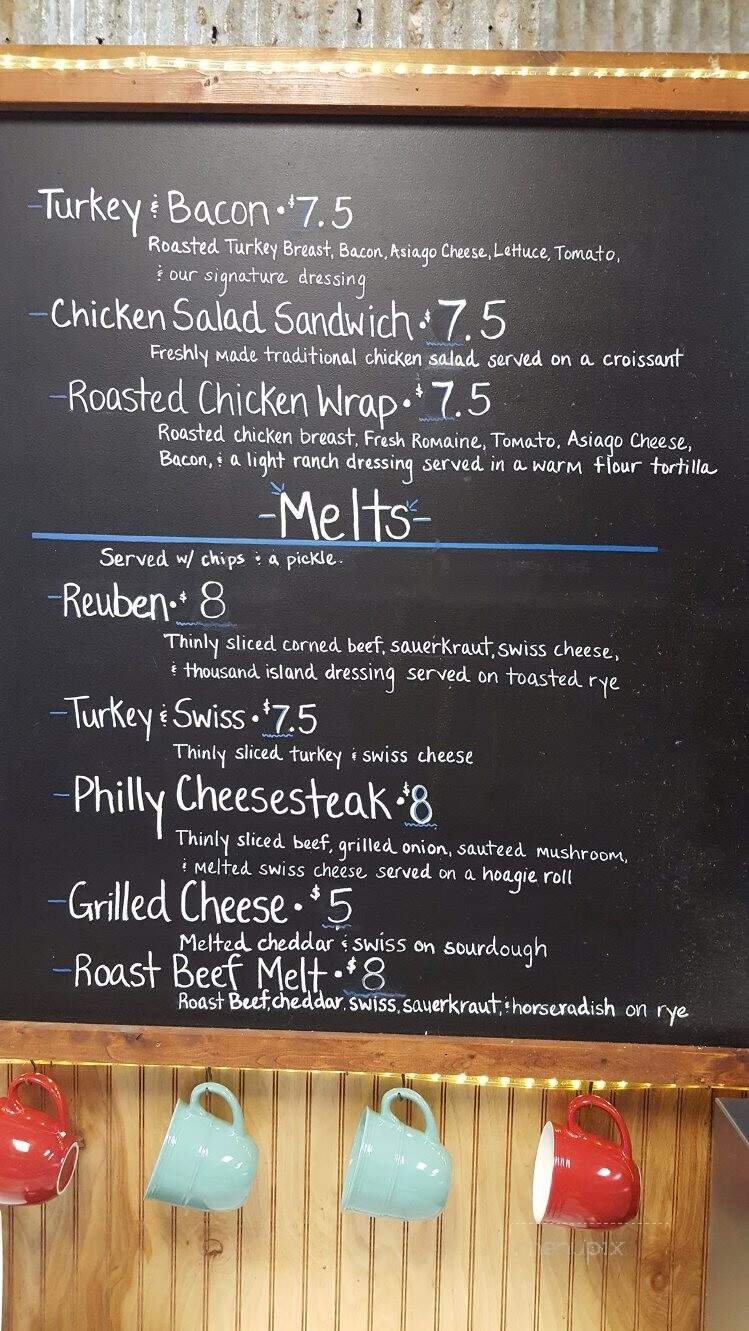 -Turkey & Bacon • $7.5
Roasted Turkey Breast, Bacon, Asiago Cheese, Lettuce, Tomato,
& our signature dressing
-Chicken Salad Sandwich • $7.5
Freshly made traditional chicken salad served on a croissant
-Roasted Chicken Wrap • $7.5
Roasted chicken breast, Fresh Romaine, Tomato, Asiago Cheese,
Bacon, & a light ranch dressing served in a warm flour tortilla
-Melts-
Served w/ chips & a pickle.
-Reuben • $8
Thinly sliced corned beef, sauerkraut, swiss cheese,
& thousand island dressing served on toasted rye
-Turkey & Swiss • $7.5
Thinly sliced turkey & swiss cheese
-Philly Cheesesteak • $8
Thinly sliced beef, grilled onion, sauteed mushroom,
& melted swiss cheese served on a hoagie roll
-Grilled Cheese • $5
Melted cheddar & swiss on sourdough
-Roast Beef Melt • $8
Roast Beef, cheddar, swiss, sauerkraut, & horseradish on rye
menupix